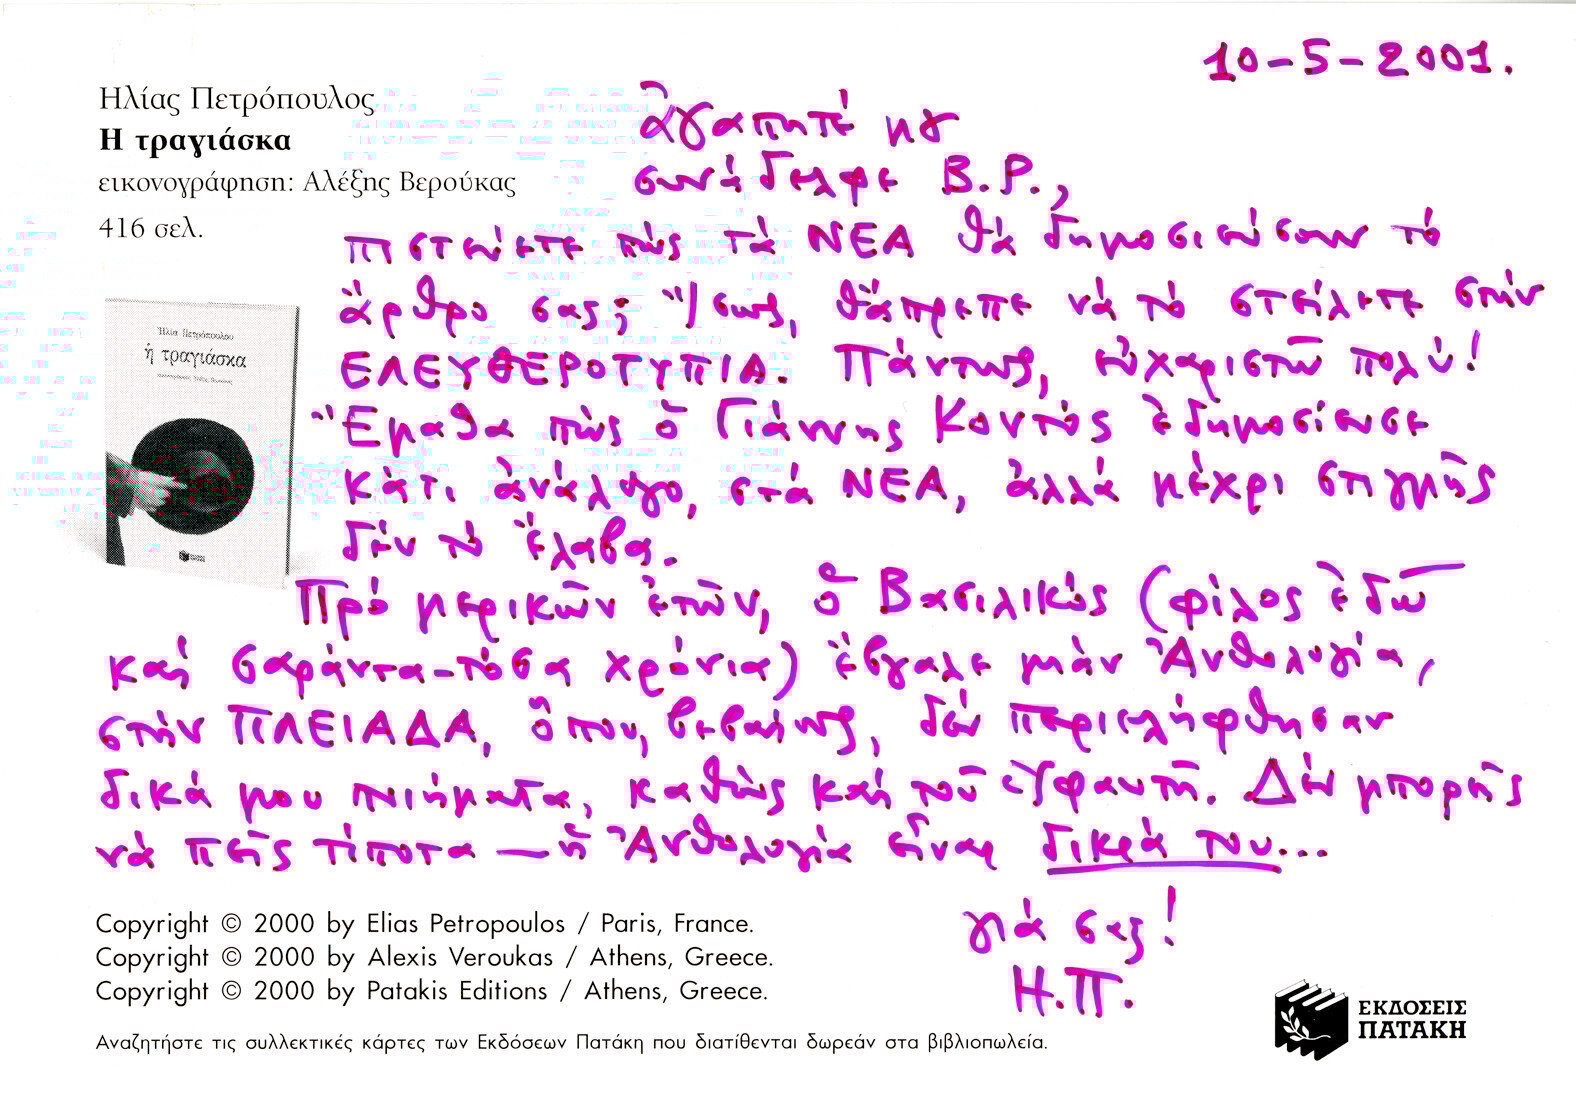 10-5-2001.
Ηλίας Πετρόπουλος
Η τραγιάσκα
εικονογράφηση: Αλέξης Βερούκας
416 σελ.
Ἠλία Πετρόπουλου
ἡ τραγιάσκα
ἀγαπητέ μȣ
συνάδελφε Β.Ρ.,
πιστεύετε πὼς τὰ ΝΕΑ θὰ δημοσιεύσουν τὸ
ἄρθρο σας; Ἴσως, θἄπρεπε νὰ τὸ στείλετε στὴν
ΕΛΕΥΘΕΡΟΤΥΠΙΑ. Πάντως, εὐχαριστῶ πολύ!
Ἔμαθα πὼς ὁ Γιάννης Κοντὸς ἐδημοσίευσε
κάτι ἀνάλογο, στὰ ΝΕΑ, ἀλλὰ μέχρι στιγμῆς
δὲν τὸ ἔλαβα.
Πρὸ μερικῶν ἐτῶν, ὁ Βασιλικὸς (φίλος ἐδῶ
καὶ σαράντα-τόσα χρόνια) ἔβγαλε μιὰν Ἀνθολογία,
στὴν ΠΛΕΙΑΔΑ, ὅπου, βεβαίως, δὲν περιελήφθησαν
δικά μου ποιήματα, καθὼς καὶ τοῦ Δὲν μπορεῖς
νὰ πεῖς τίποτα — ἡ Ἀνθολογία εἶναι δικιά του...
γιά σας!
Η.Π.
Copyright © 2000 by Elias Petropoulos / Paris, France.
Copyright © 2000 by Alexis Veroukas / Athens, Greece.
Copyright © 2000 by Patakis Editions / Athens, Greece.
Αναζητήστε τις συλλεκτικές κάρτες των Εκδόσεων Πατάκη που διατίθενται δωρεάν στα βιβλιοπωλεία.
ΕΚΔΟΣΕΙΣ
ΠΑΤΑΚΗ